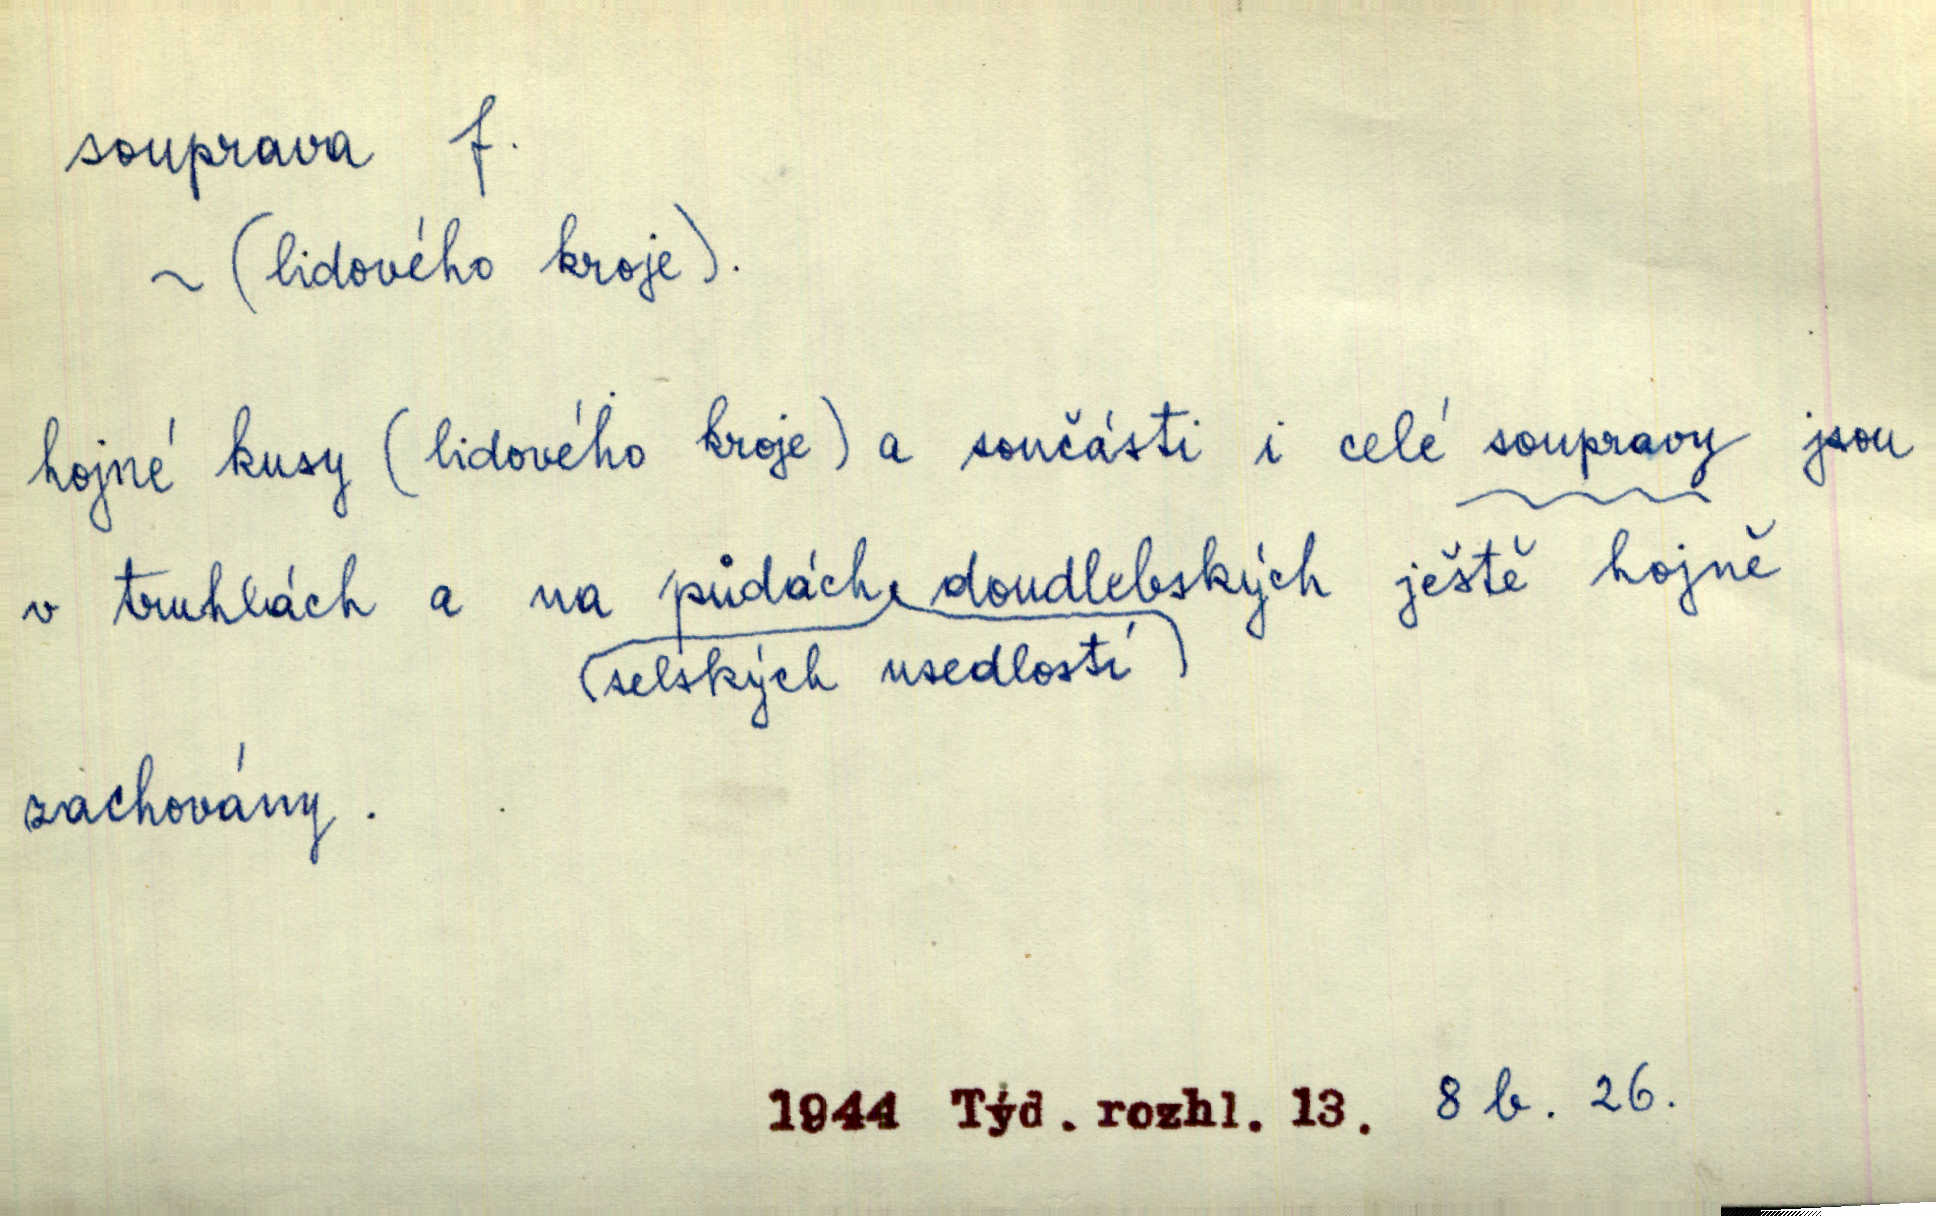 souprava f.
~ (lidového kroje).
hojné kusy (lidového kroje) a součásti i celé soupravy jsou
v truhlách a na půdách doudlebských ještě hojně
(selských usedlostí)
zachovány.
1944 Týd. rozhl. 13. 8 b. 26.